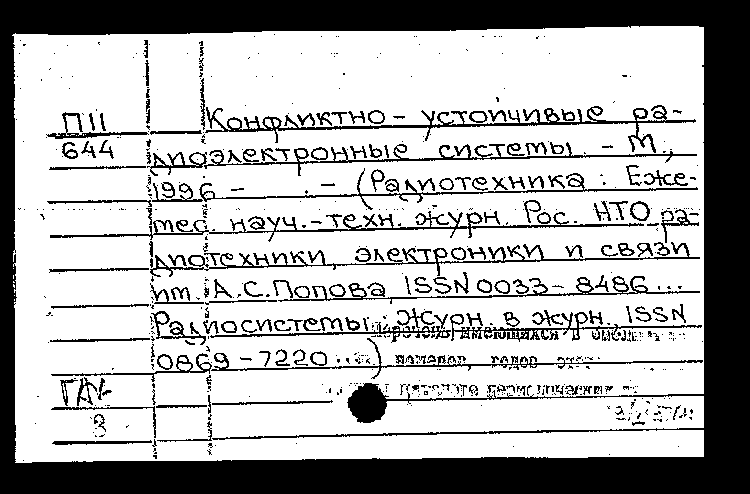 П11 Конфликтно - устойчивые ра-
644 диоэлектронные системы. - М.,
1996 - . - (Радиотехника : Еже-
мес. науч.-техн. журн. Рос. НТО ра-
диотехники, электроники и связи
им. А.С.Попова, ISSN 0033-8486...
Радиосистемы : Журн. в журн. ISSN
0869-7220...)
перечень имеющихся в
номеров, годов
каталоге периодических
8